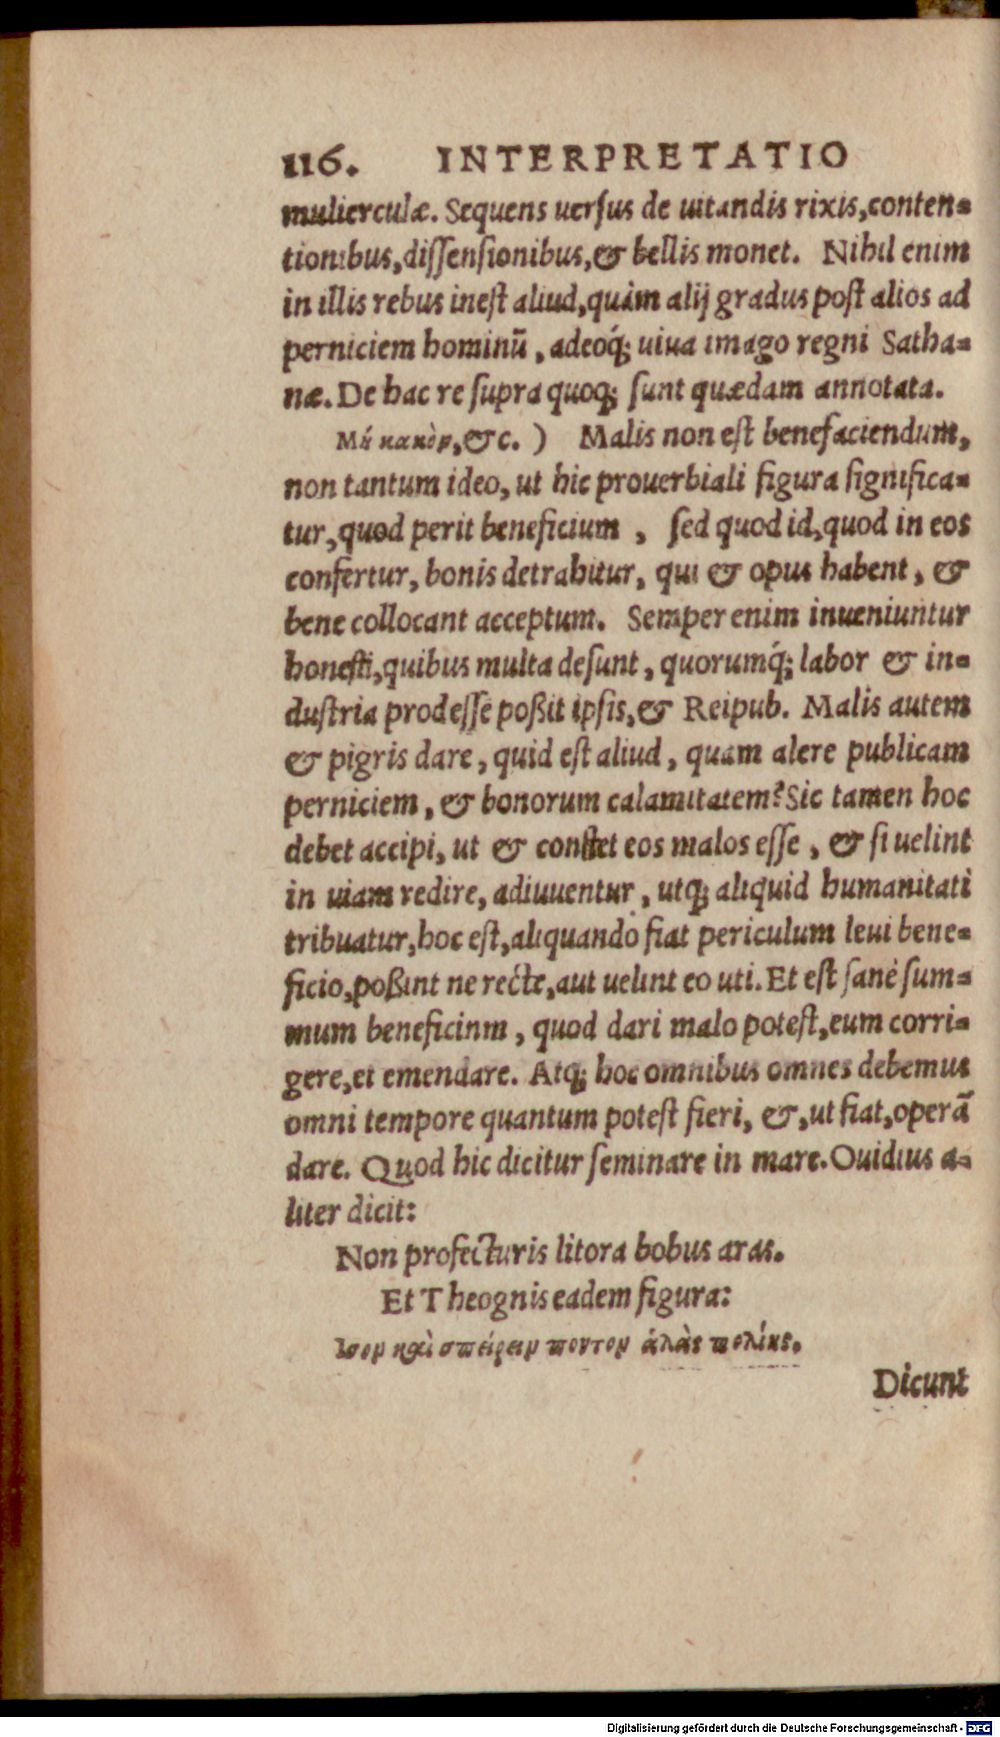 116. INTERPRETATIO
mulierculæ. Sequens uersus de uitandis rixis, conten-
tionibus, dissensionibus, & bellis monet. Nihil enim
in illis rebus inest aliud, quàm alij gradus post alios ad
perniciem hominū, adeoq́; uiua imago regni Satha-
næ. De hac re supra quoq; sunt quædam annotata.
Μή κακὸν, &c. ) Malis non est benefaciendum,
non tantum ideo, ut hic prouerbiali figura significa-
tur, quod perit beneficium, sed quod id, quod in eos
confertur, bonis detrahitur, qui & opus habent, &
bene collocant acceptum. Semper enim inueniuntur
honesti, quibus multa desunt, quorumq́; labor & in-
dustria prodesse poßit ipsis, & Reipub. Malis autem
& pigris dare, quid est aliud, quam alere publicam
perniciem, & bonorum calamitatem? Sic tamen hoc
debet accipi, ut & constet eos malos esse, & si uelint
in uiam redire, adiuuentur, utq; aliquid humanitati
tribuatur, hoc est, aliquando fiat periculum leui bene-
ficio, poßint ne recte, aut uelint eo uti. Et est sanè sum-
mum beneficinm, quod dari malo potest, eum corri-
gere, et emendare. Atq; hoc omnibus omnes debemus
omni tempore quantum potest fieri, &, ut fiat, operā
dare. Quod hic dicitur seminare in mare. Ouidius a-
liter dicit:
Non profecturis litora bobus aras.
Et Theognis eadem figura:
Ἶσον καὶ σπείρειν ποντον ἁλὸς πολιῆς.
Dicunt
Digitalisierung gefördert durch die Deutsche Forschungsgemeinschaft - DFG